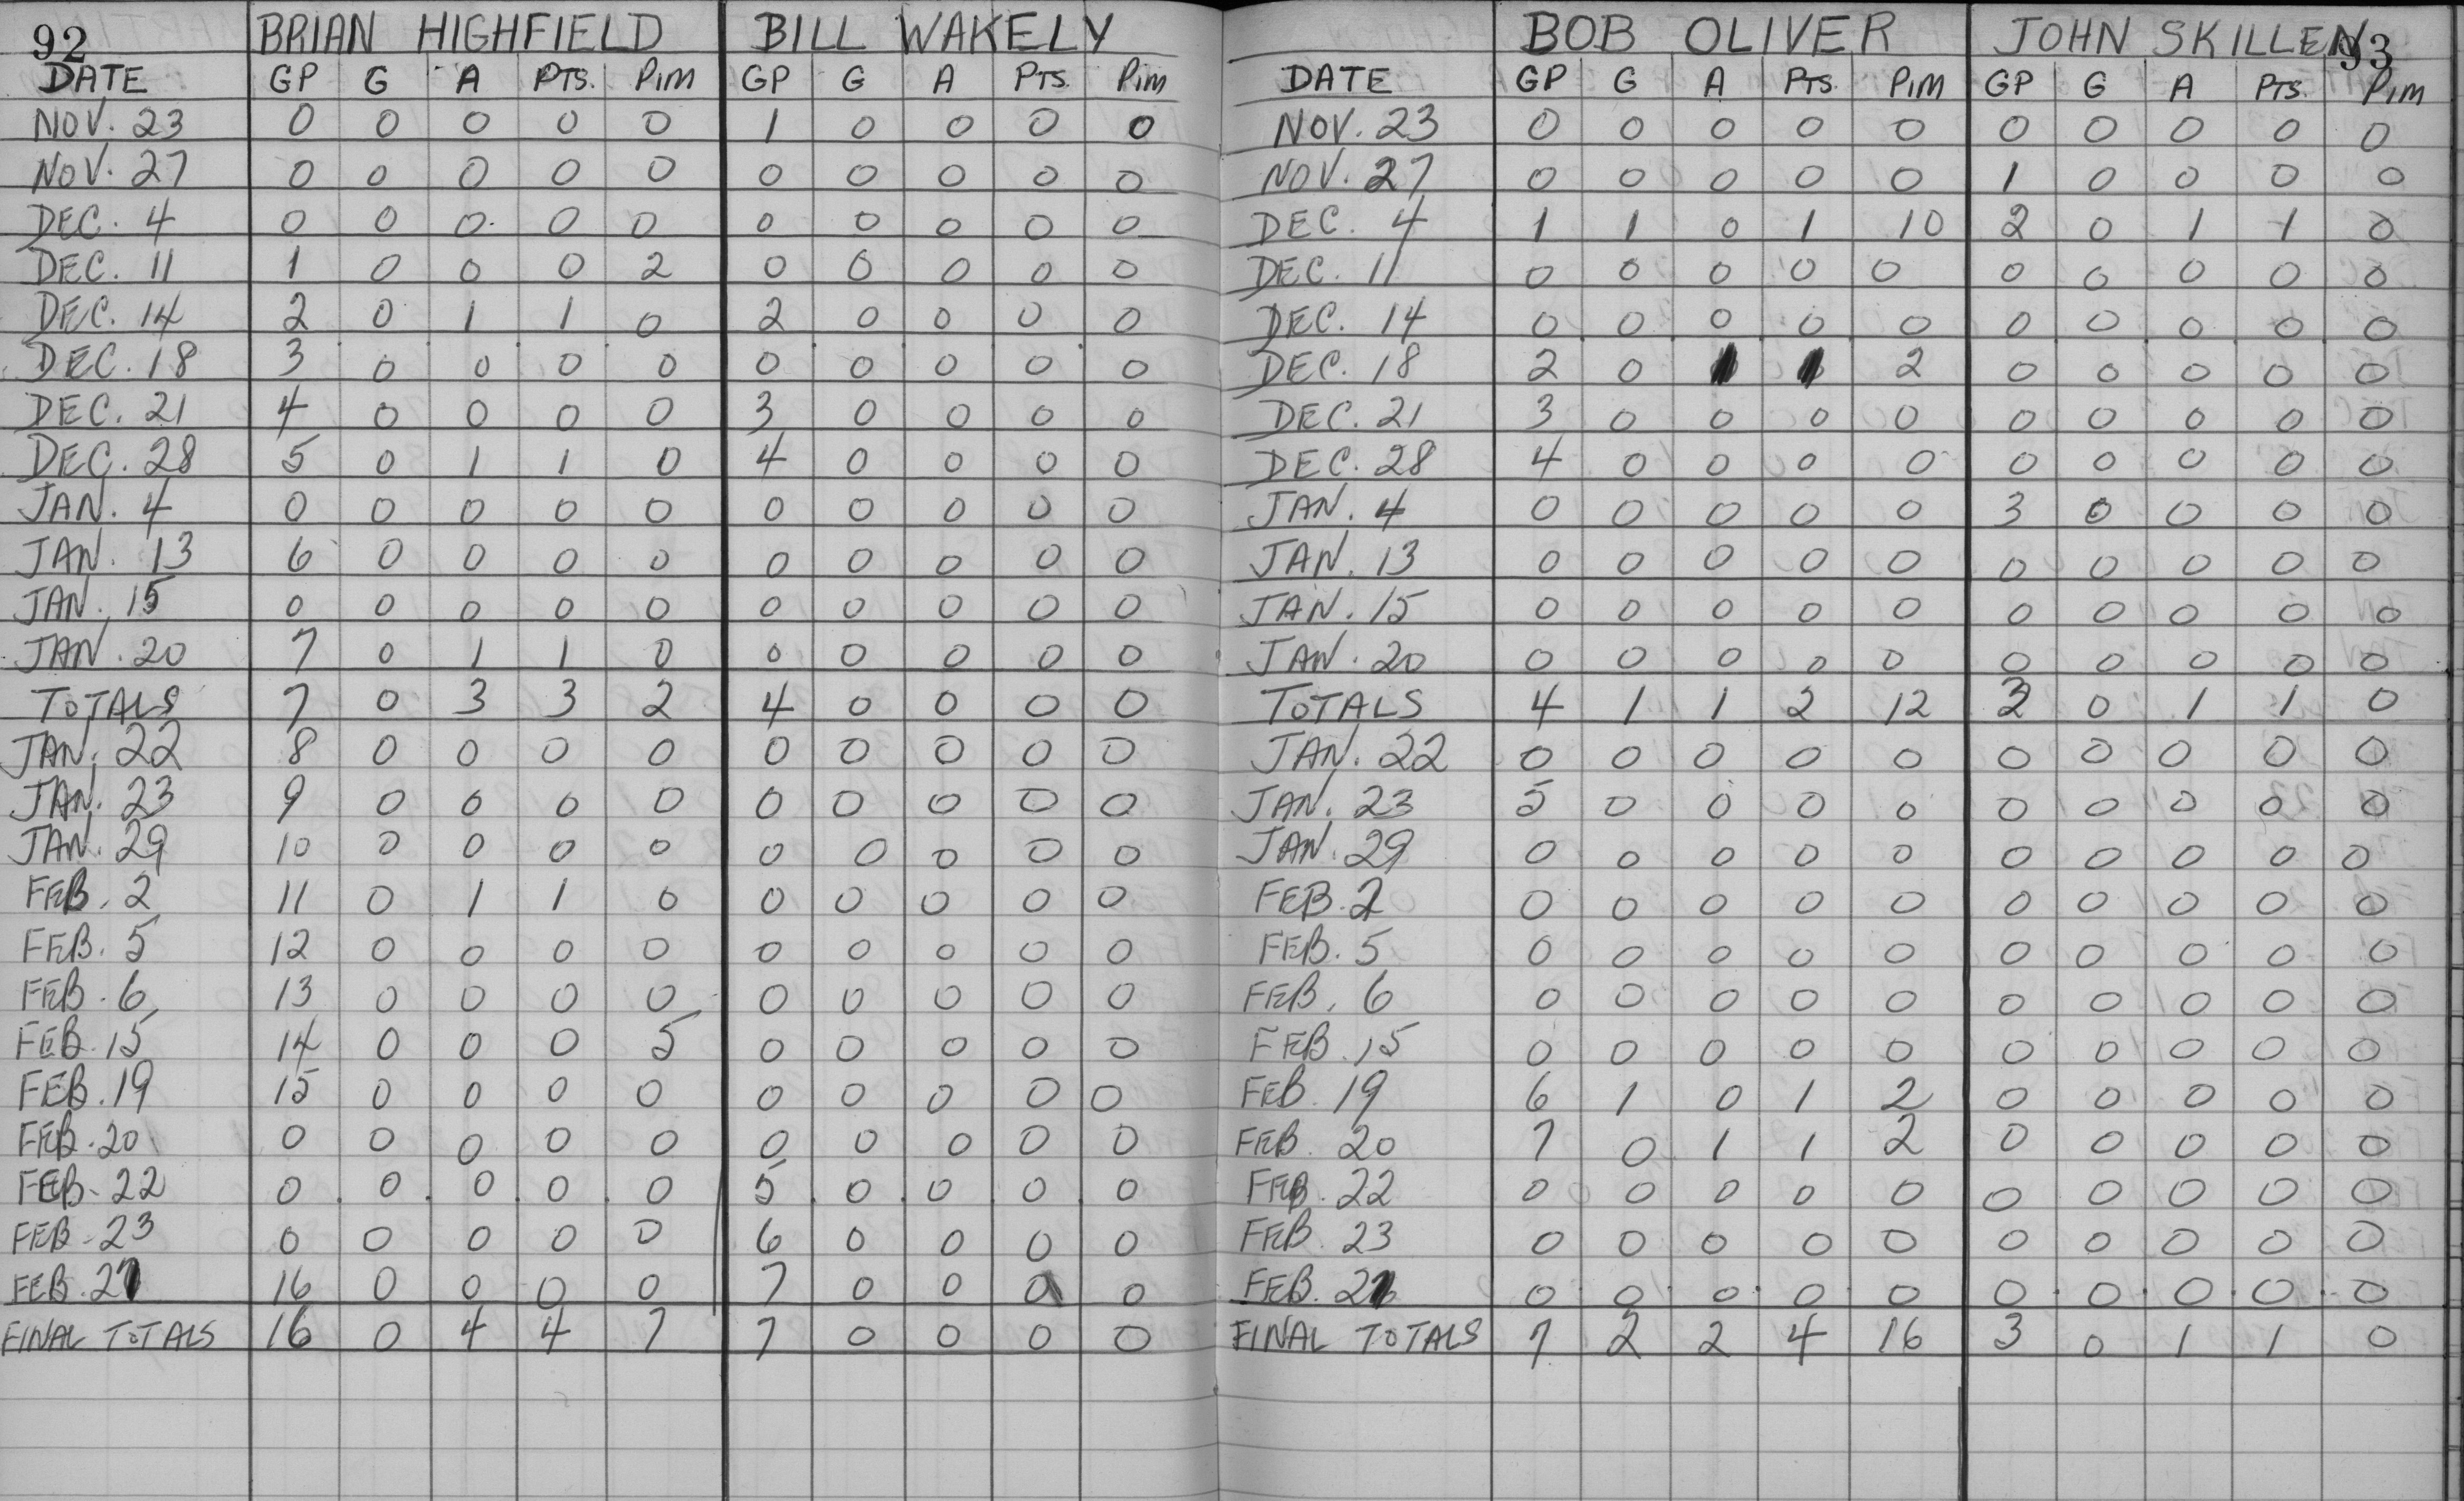 92 BRIAN HIGHFIELD BILL WAKELY
DATE GP G A PTS. PIM GP G A PTS. PIM
NOV. 23 0 0 0 0 0 1 0 0 0 0
NOV. 27 0 0 0 0 0 0 0 0 0 0
DEC. 4 0 0 0 0 0 0 0 0 0 0
DEC. 11 1 0 0 0 2 0 0 0 0 0
DEC. 14 2 0 1 1 0 2 0 0 0 0
DEC. 18 3 0 0 0 0 0 0 0 0 0
DEC. 21 4 0 0 0 0 3 0 0 0 0
DEC. 28 5 0 1 1 0 4 0 0 0 0
JAN. 4 0 0 0 0 0 0 0 0 0 0
JAN. 13 6 0 0 0 0 0 0 0 0 0
JAN. 15 0 0 0 0 0 0 0 0 0 0
JAN. 20 7 0 1 1 0 0 0 0 0 0
TOTALS 7 0 3 3 2 4 0 0 0 0
JAN. 22 8 0 0 0 0 0 0 0 0 0
JAN. 23 9 0 0 0 0 0 0 0 0 0
JAN. 29 10 0 0 0 0 0 0 0 0 0
FEB. 2 11 0 1 1 0 0 0 0 0 0
FEB. 5 12 0 0 0 0 0 0 0 0 0
FEB. 6 13 0 0 0 0 0 0 0 0 0
FEB. 15 14 0 0 0 5 0 0 0 0 0
FEB. 19 15 0 0 0 0 0 0 0 0 0
FEB. 20 0 0 0 0 0 0 0 0 0 0
FEB. 22 0 0 0 0 0 5 0 0 0 0
FEB. 23 0 0 0 0 0 6 0 0 0 0
FEB. 16 0 0 0 0 7 0 0 0 0
FINAL TOTALS 16 0 4 4 7 7 0 0 0 0
BOB OLIVER JOHN SKILLEN 93
DATE GP G A PTS. PIM GP G A PTS. PIM
NOV. 23 0 0 0 0 0 0 0 0 0 0
NOV. 27 0 0 0 0 0 1 0 0 0 0
DEC. 4 1 1 0 1 10 2 0 1 1 0
DEC. 11 0 0 0 0 0 0 0 0 0 0
DEC. 14 0 0 0 0 0 0 0 0 0 0
DEC. 18 2 0 1 1 2 0 0 0 0 0
DEC. 21 3 0 0 0 0 0 0 0 0 0
DEC. 28 4 0 0 0 0 0 0 0 0 0
JAN. 4 0 0 0 0 0 3 0 0 0 0
JAN. 13 0 0 0 0 0 0 0 0 0 0
JAN. 15 0 0 0 0 0 0 0 0 0 0
JAN. 20 0 0 0 0 0 0 0 0 0 0
TOTALS 4 1 1 2 12 3 0 1 1 0
JAN. 22 0 0 0 0 0 0 0 0 0 0
JAN. 23 5 0 0 0 0 0 0 0 0 0
JAN. 29 0 0 0 0 0 0 0 0 0 0
FEB. 2 0 0 0 0 0 0 0 0 0 0
FEB. 5 0 0 0 0 0 0 0 0 0 0
FEB. 6 0 0 0 0 0 0 0 0 0 0
FEB. 15 0 0 0 0 0 0 0 0 0 0
FEB. 19 6 1 0 1 2 0 0 0 0 0
FEB. 20 7 0 1 1 2 0 0 0 0 0
FEB. 22 0 0 0 0 0 0 0 0 0 0
FEB. 23 0 0 0 0 0 0 0 0 0 0
FEB. 0 0 0 0 0 0 0 0 0 0
FINAL TOTALS 7 2 2 4 16 3 0 1 1 0